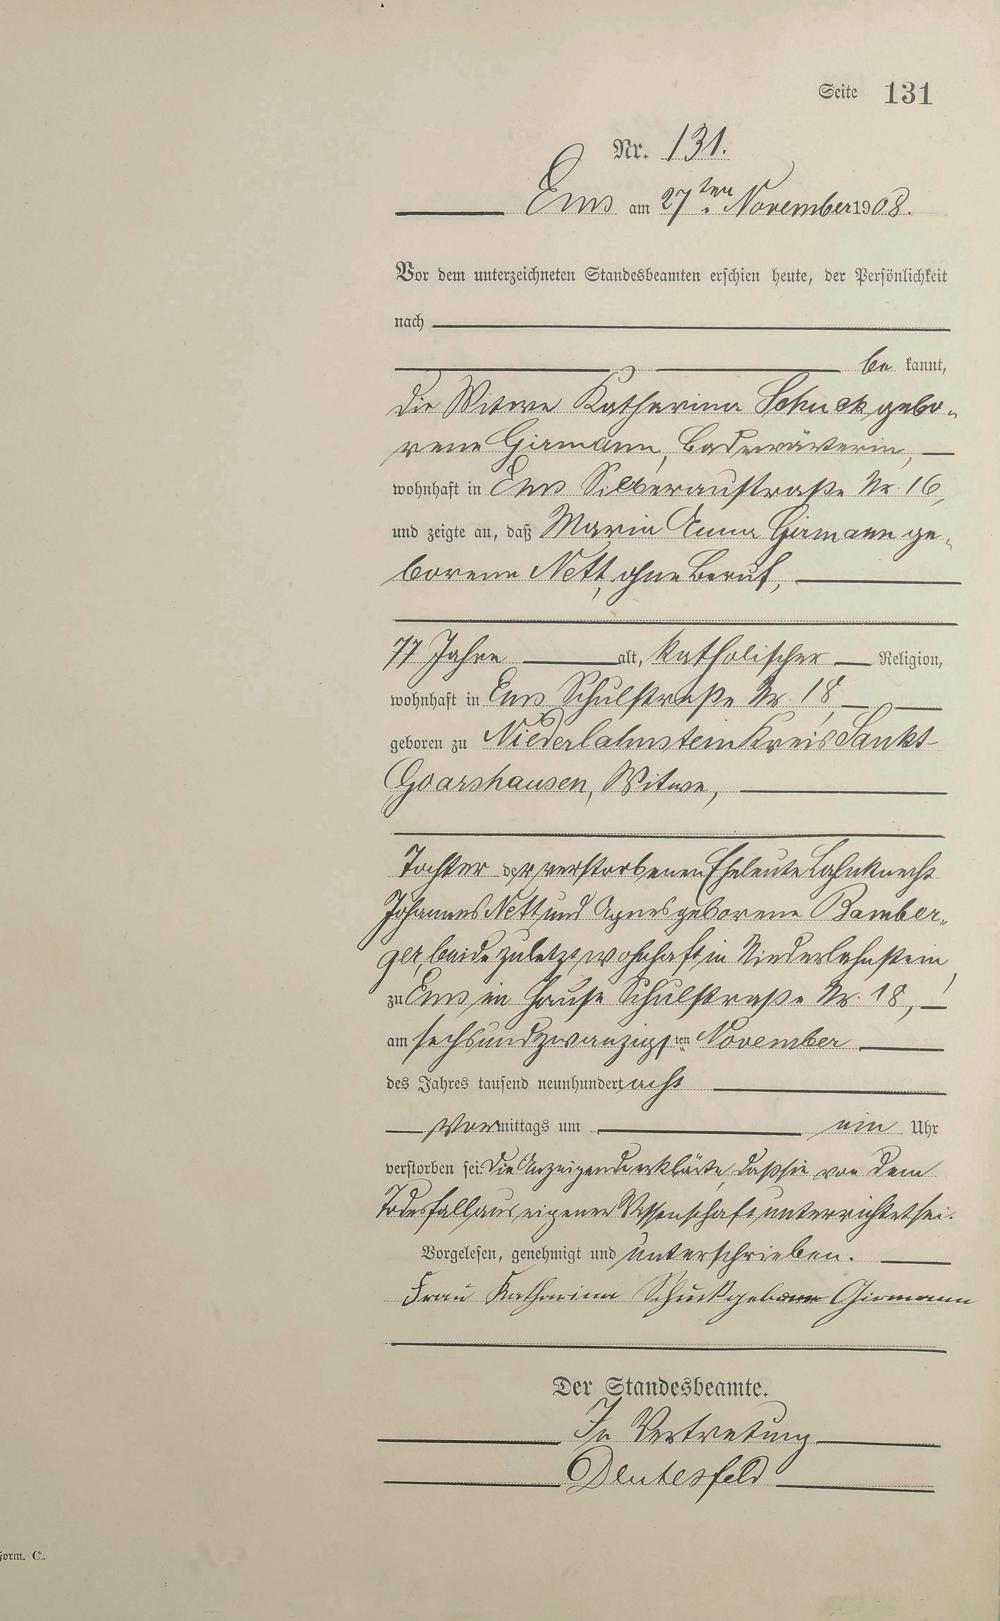 Seite 131
Nr. 131.
Ems am 27ten November 1908.
Vor dem unterzeichneten Standesbeamten erschien heute, der Persönlichkeit
nach
be kannt,
die Witwe Katharina Schuck gebo-
rene Girmann, Badewärterin,
wohnhaft in Ems Silberaustraße Nr. 16,
und zeigte an, daß Maria Anna Girmann ge-
borene Nett, ohne Beruf,
77 Jahre alt, katholischer Religion,
wohnhaft in Ems Schulstraße Nr. 18,
geboren zu Niederlahnstein Kreis Sankt-
Goarshausen, Witwe,
Tochter der verstorbenen Eheleute Lahnknecht
Johannes Nett und Agnes geborene Bamber-
ger, beide zuletzt wohnhaft in Niederlahnstein,
zu Ems im Hause Schulstraße Nr. 18,
am sechsundzwanzigsten November
des Jahres tausend neunhundert acht
Vormittags um ein Uhr
verstorben sei. Die Anzeigende erklärte, daß sie von dem
Todesfall aus eigener Wissenschaft unterrichtet sei.
Vorgelesen, genehmigt und unterschrieben.
Frau Katharina Schuck geborne Girmann
Der Standesbeamte.
In Vertretung
Deutesfeld
Form. C.